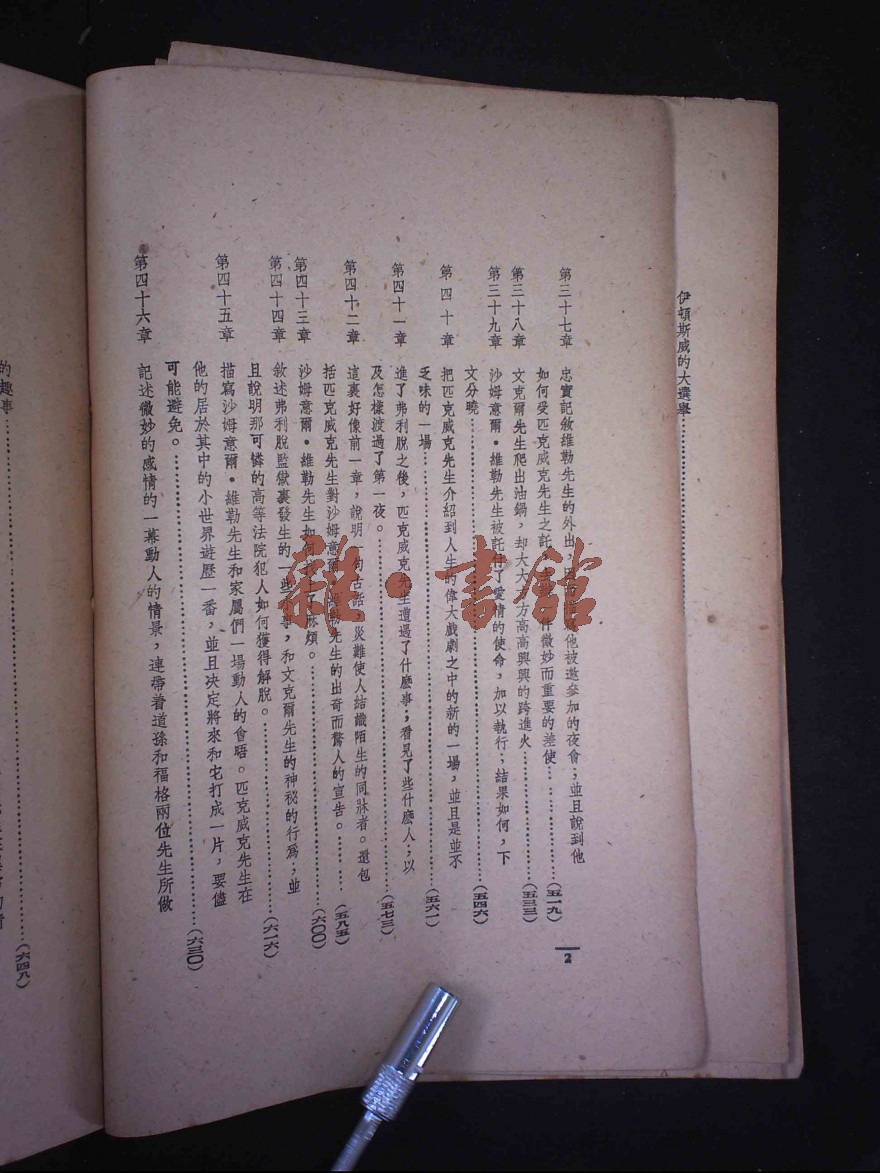 伊頓斯威的大選舉
2
第三十七章 忠實記敘維勒先生的外出,他被邀參加的夜會;並且說到他
如何受匹克威克先生之託,微妙而重要的差使(五一九)
第三十八章 文克爾先生爬出油鍋,却大大方方高高興興的跨進火(五三三)
第三十九章 沙姆意爾•維勒先生被託付了愛情的使命,加以執行;結果如何,下
文分曉(五四六)
第四十章 把匹克威克先生介紹到人生的偉大戲劇之中的新的一場,並且是並不
乏味的一場(五六一)
第四十一章 進了弗利脫之後,匹克威克先生遭遇了什麽事;看見了些什麽人;以
及怎樣渡過了第一夜。(五七三)
第四十二章 這裏好像前一章,說明句古話,災難使人結識陌生的同牀者。還包
括匹克威克先生對沙姆意爾維勒先生的出奇而驚人的宣告。(五八五)
第四十三章 沙姆意爾•維勒先生如何找上了麻煩。(六〇〇)
第四十四章 敘述弗利脫監獄裏發生的一些小事,和文克爾先生的神祕的行爲;並
且說明那可憐的高等法院犯人如何獲得解脫。(六一六)
第四十五章 描寫沙姆意爾•維勒先生和家屬們一場動人的會晤。匹克威克先生在
他的居於其中的小世界遊歷一番,並且决定將來和它打成一片,要儘
可能避免。(六三〇)
第四十六章 記述微妙的感情的一幕動人的情景,連帶着道孫和福格兩位先生所做
的趣事(六四八)
雜•書館